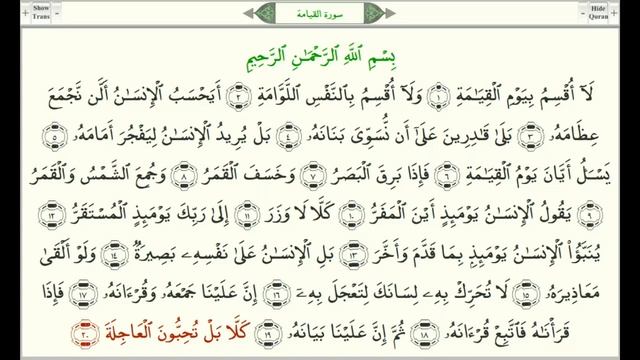 Show
Trans
سورة القيامة
Hide
Quran
بِسْمِ ٱللَّهِ ٱلرَّحْمَٰنِ ٱلرَّحِيمِ
لَآ أُقْسِمُ بِيَوْمِ ٱلْقِيَٰمَةِ ۝١ وَلَآ أُقْسِمُ بِٱلنَّفْسِ ٱللَّوَّامَةِ ۝٢ أَيَحْسَبُ ٱلْإِنسَٰنُ أَلَّن نَّجْمَعَ
عِظَامَهُۥ ۝٣ بَلَىٰ قَٰدِرِينَ عَلَىٰٓ أَن نُّسَوِّىَ بَنَانَهُۥ ۝٤ بَلْ يُرِيدُ ٱلْإِنسَٰنُ لِيَفْجُرَ أَمَامَهُۥ ۝٥
يَسْـَٔلُ أَيَّانَ يَوْمُ ٱلْقِيَٰمَةِ ۝٦ فَإِذَا بَرِقَ ٱلْبَصَرُ ۝٧ وَخَسَفَ ٱلْقَمَرُ ۝٨ وَجُمِعَ ٱلشَّمْسُ وَٱلْقَمَرُ
۝٩ يَقُولُ ٱلْإِنسَٰنُ يَوْمَئِذٍ أَيْنَ ٱلْمَفَرُّ ۝١٠ كَلَّا لَا وَزَرَ ۝١١ إِلَىٰ رَبِّكَ يَوْمَئِذٍ ٱلْمُسْتَقَرُّ ۝١٢
يُنَبَّؤُا۟ ٱلْإِنسَٰنُ يَوْمَئِذٍۭ بِمَا قَدَّمَ وَأَخَّرَ ۝١٣ بَلِ ٱلْإِنسَٰنُ عَلَىٰ نَفْسِهِۦ بَصِيرَةٌ ۝١٤ وَلَوْ أَلْقَىٰ
مَعَاذِيرَهُۥ ۝١٥ لَا تُحَرِّكْ بِهِۦ لِسَانَكَ لِتَعْجَلَ بِهِۦٓ ۝١٦ إِنَّ عَلَيْنَا جَمْعَهُۥ وَقُرْءَانَهُۥ ۝١٧ فَإِذَا
قَرَأْنَٰهُ فَٱتَّبِعْ قُرْءَانَهُۥ ۝١٨ ثُمَّ إِنَّ عَلَيْنَا بَيَانَهُۥ ۝١٩ كَلَّا بَلْ تُحِبُّونَ ٱلْعَاجِلَةَ ۝٢٠